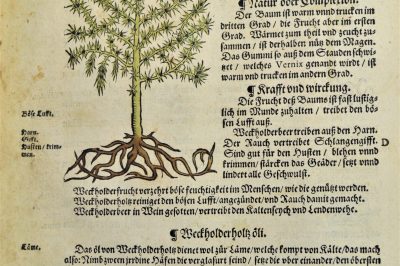 ¶ Natur oder Complexion.
Der Baum ist warm vnnd trucken im
dritten Grad, die Frucht aber im ersten
Grad. Wärmet zum theil vnd zeucht zu-
sammen / ist derhalben nütz dem Magen.
Das Gummi so auß dem Stauden schwi-
tzet / welches Vernix genañt wirdt / ist
warm vnd trucken im andern Grad.
¶ Krafft vnd wirckung.
Die Frucht deß Baums ist fast lustig-
lich im Munde zuhalten / treibet den bö-
sen Lufft auß.
Böse Lufft.
Weckholderbeer treiben auß den Harn.
Harn.
Der Rauch vertreibt Schlangengifft. D
Gifft.
Sind gut für den Husten / blehen vnnd
Husten / krim-
krimmen / stärcken das Geäder / setzt vnnd
men.
lindert alle Geschwulst.
Weckholderfrucht verzehrt böse feuchtigkeit im Menschen / wie die genützt werden.
Weckholderholtz reiniget den bösen Lufft / angezündet / vnd Rauch damit gemacht.
Weckholderbeer in Wein gesotten / vertreibt den Kaltenseych vnd Lendenwehe.
¶ Weckholderholtz öli.
Läme.
Das öl von Weckholderholtz dienet wol zur Läme / welche kompt von Kälte / das mach
also: Nimb zween jrrdine Häfen die verglasurt sind / setze die vber einander / den öbersten